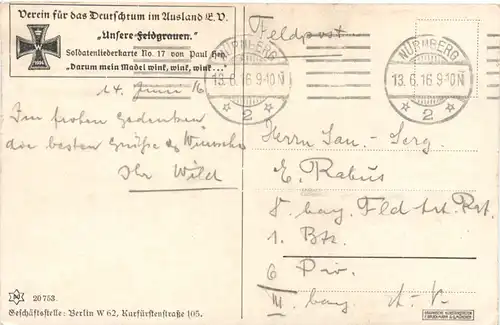 Verein für das Deutschtum im Ausland E.V.
„Unsere Feldgrauen.“
Soldatenliederkarte No. 17 von Paul Hey
„Darum mein Mädel wink, wink, wink...“
Feldpost
NÜRNBERG
13.6.16 9-10N
2
NÜRNBERG
13.6.16 9-10N
2
14. Juni 16
Im frohen Gedenken
die besten Grüße & Wünsche
Ihr Wild
Herrn San.- Serg.
E. Rabus
8. bay. Fld Art. Rgt.
1. Btr.
6 Div.
III. bay. A.-K.
20753.
Geschäftsstelle: Berlin W 62, Kurfürstenstraße 105.